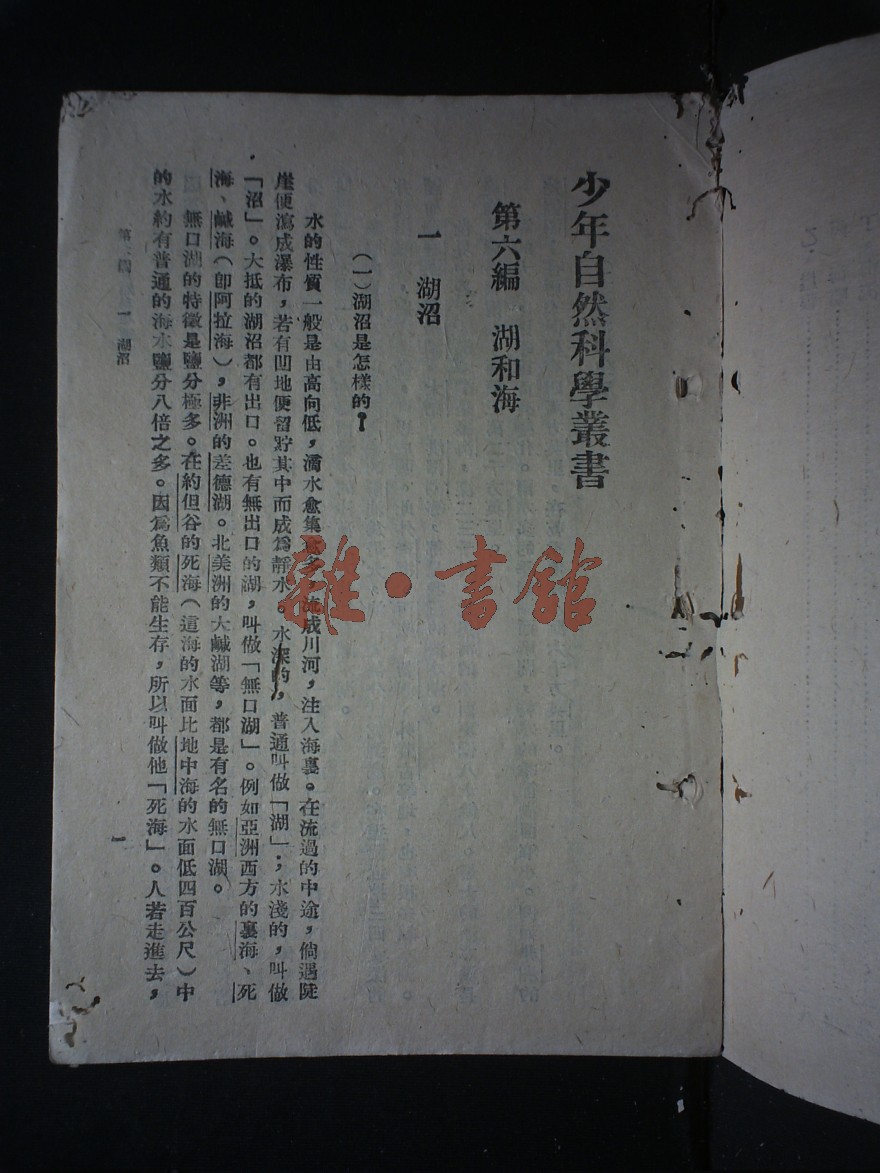 少年自然科學叢書
第六編　湖和海
一　湖沼
(一)湖沼是怎樣的？
水的性質一般是由高向低，滴水愈集愈多，流成川河，注入海裏。在流過的中途，倘遇陡
崖便瀉成瀑布，若有凹地便留貯其中而成爲靜水。水深的，普通叫做「湖」；水淺的，叫做
「沼」。大抵的湖沼都有出口。也有無出口的湖，叫做「無口湖」。例如亞洲西方的裏海、死
海、鹹海(卽阿拉海)，非洲的差德湖。北美洲的大鹹湖等，都是有名的無口湖。
無口湖的特徵是鹽分極多。在約但谷的死海(這海的水面比地中海的水面低四百公尺)中
的水約有普通的海水鹽分八倍之多。因爲魚類不能生存，所以叫做他「死海」。人若走進去，
第　一　湖沼
一
雜·書館